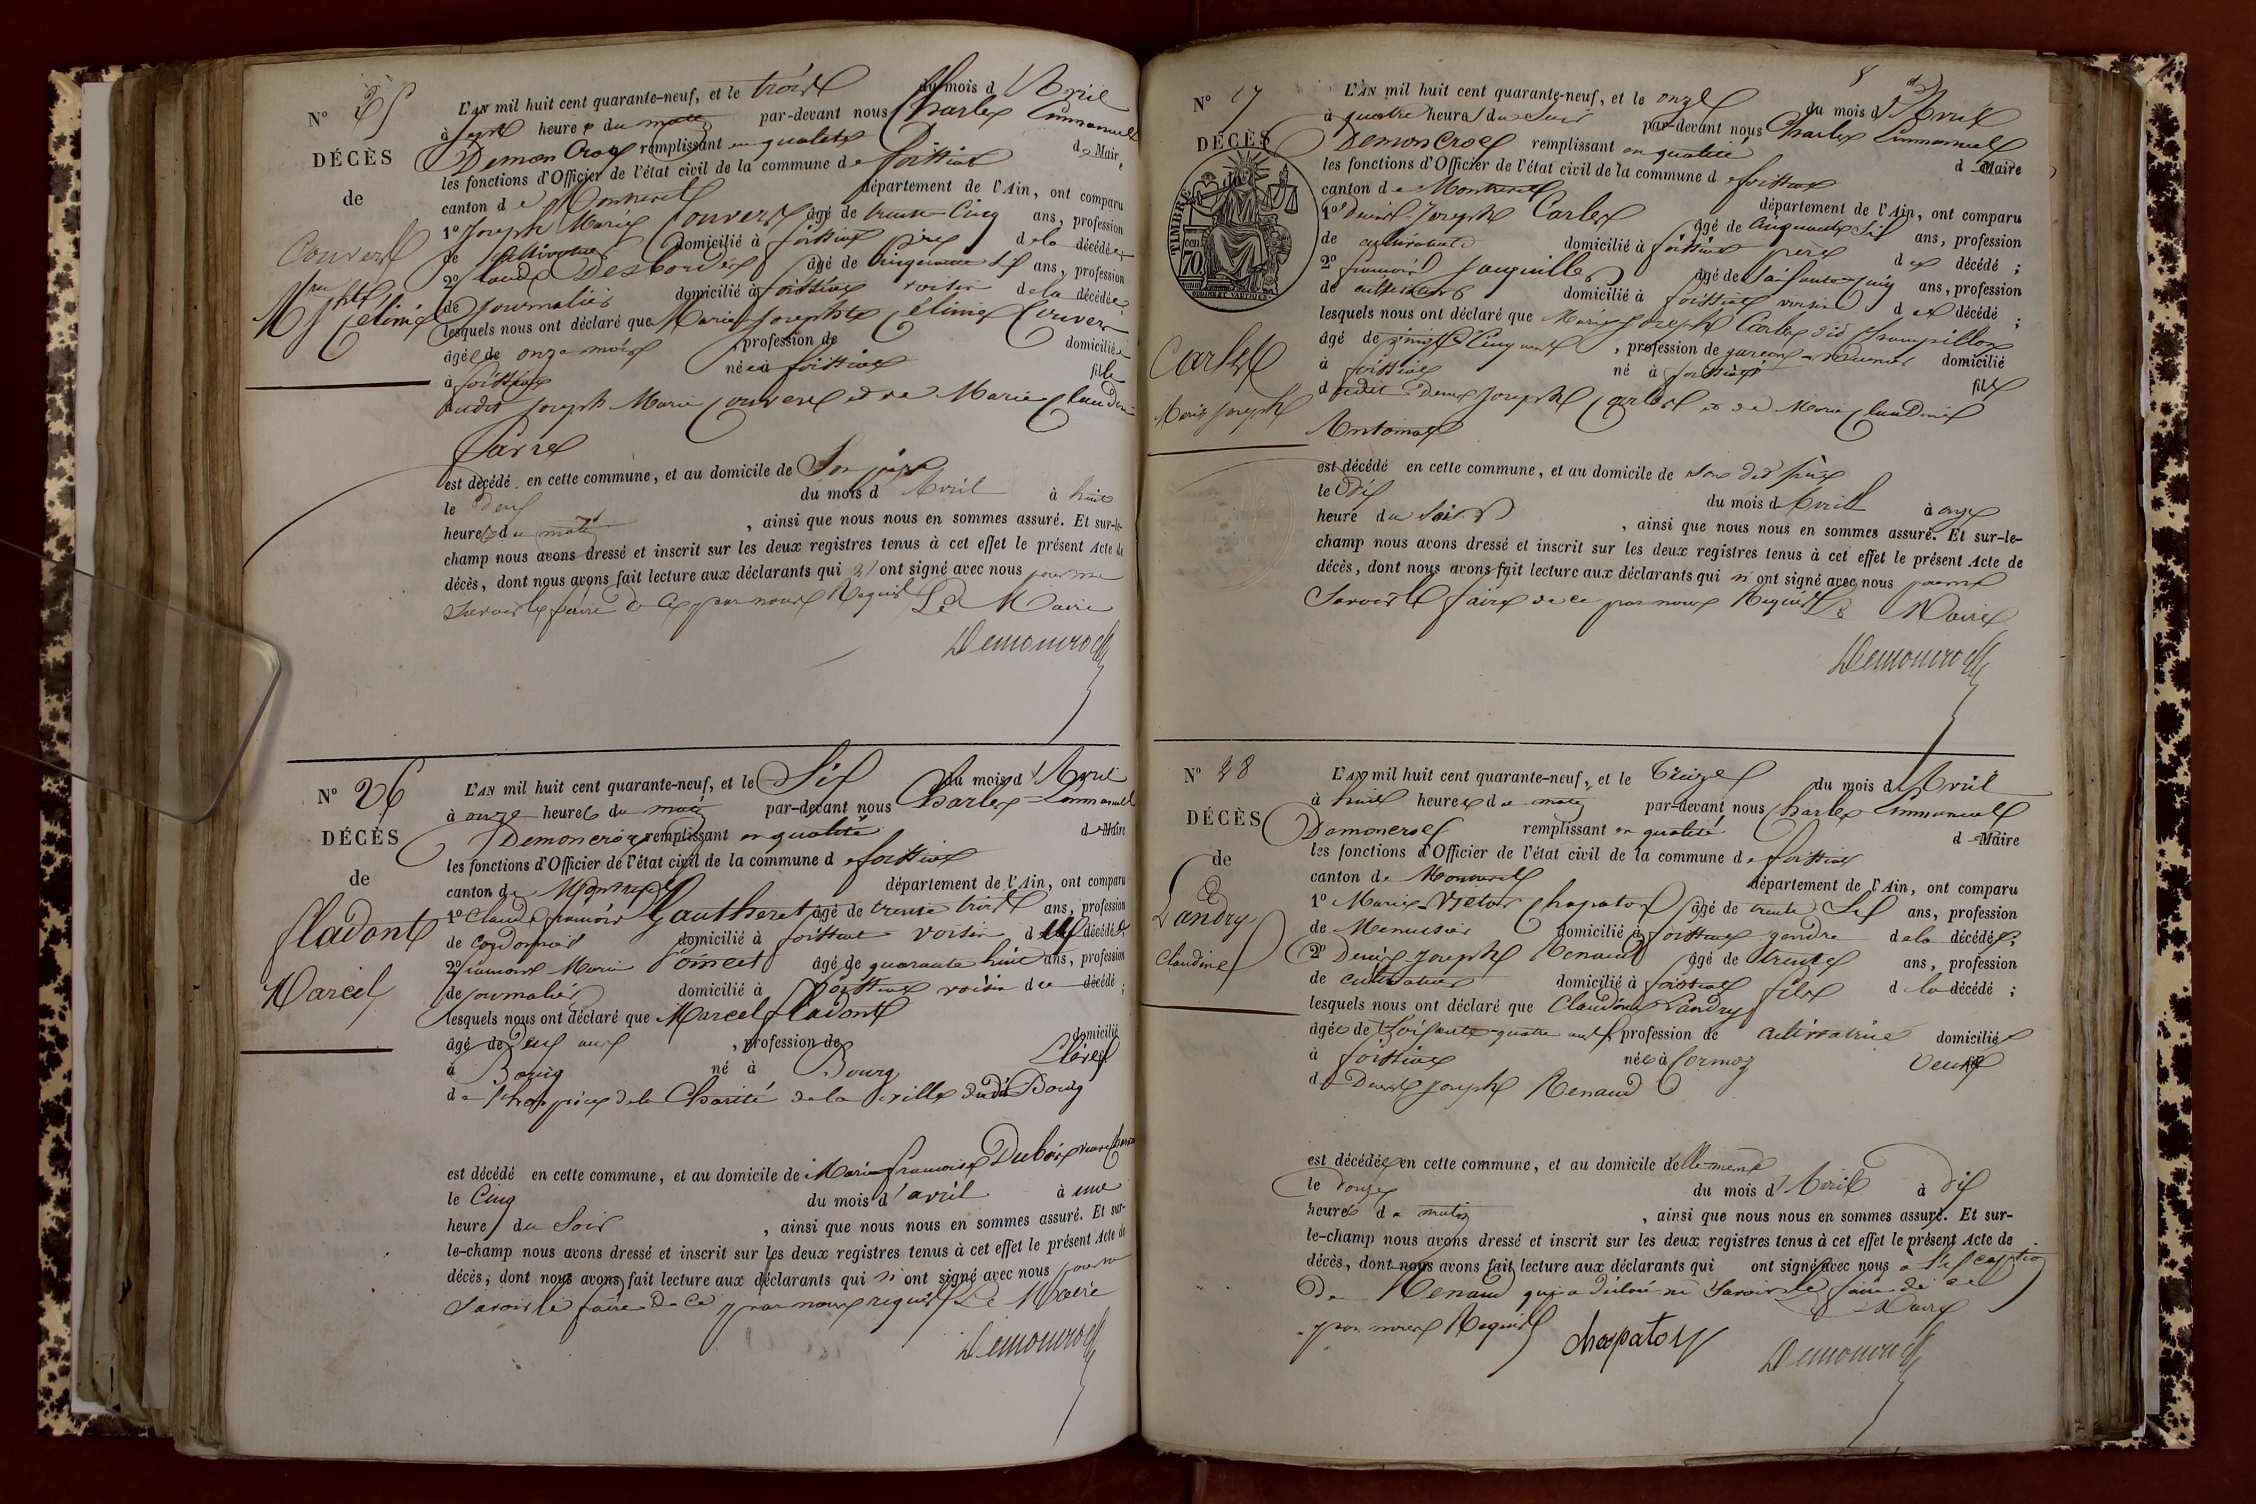 N° 25
DÉCÈS
de
Couvert
Mie Jphte
Célinie
L'AN mil huit cent quarante-neuf, et le trois du mois d'Avril
à sept heures du matin par-devant nous Charles Emmanuel
Demoncroix remplissant en qualité de Maire
les fonctions d'Officier de l'état civil de la commune de foissiat
canton de Montrevel département de l'Ain, ont comparu
1° Joseph Marie Couvert âgé de trente Cinq ans, profession
de Cultivateur domicilié à foissiat père de la décédée
2° Claude Desbordes âgé de cinquante six ans, profession
de journalier domicilié à foissiat voisin de la décédée;
lesquels nous ont déclaré que Marie Josephte Célinie Couvert
âgée de onze mois, profession de domiciliée
à foissiat née à foissiat fille
dudit Joseph Marie Couvert et de Marie Claudine
Parre
est décédé en cette commune, et au domicile de Son père
le deux du mois d'Avril à huit
heures du matin, ainsi que nous nous en sommes assuré. Et sur-le-
champ nous avons dressé et inscrit sur les deux registres tenus à cet effet le présent Acte de
décès, dont nous avons fait lecture aux déclarants qui n'ont signé avec nous pour ne
Savoir le faire de ce par nous Requis Le Maire
Demoncroix
N° 26
DÉCÈS
de
fladont
Marcel
L'AN mil huit cent quarante-neuf, et le Six du mois d'Avril
à onze heures du matin par-devant nous Charles Emmanuel
Demoncroix remplissant en qualité de Maire
les fonctions d'Officier de l'état civil de la commune de foissiat
canton de Montrevel département de l'Ain, ont comparu
1° Claude françois Gautheret âgé de trente trois ans, profession
de Cordonnier domicilié à foissiat voisin du décédé;
2° françois Marie Poncet âgé de quarante huit ans, profession
de journalier domicilié à foissiat voisin du décédé;
lesquels nous ont déclaré que Marcel fladont
âgé de Deux ans, profession de domicilié
à Bourg né à Bourg Elève
de l'hospice de la Charité de la ville dudit Bourg
est décédé en cette commune, et au domicile de Marie françoise Dubois
le Cinq du mois d'avril à une
heure du Soir, ainsi que nous nous en sommes assuré. Et sur-
le-champ nous avons dressé et inscrit sur les deux registres tenus à cet effet le présent Acte de
décès, dont nous avons fait lecture aux déclarants qui n'ont signé avec nous pour ne
Savoir le faire de ce par nous requis Le Maire
Demoncroix
8
N° 27
DÉCÈS
TIMBRE
70
Carlet
Marie Joseph
L'AN mil huit cent quarante-neuf, et le onze du mois d'Avril
à quatre heures du Soir par-devant nous Charles Emmanuel
Demoncroix remplissant en qualité de Maire
les fonctions d'Officier de l'état civil de la commune de foissiat
canton de Montrevel département de l'Ain, ont comparu
1° Denis Joseph Carlet âgé de Cinquante Six ans, profession
de cultivateur domicilié à foissiat père du décédé;
2° françois âgé de Soixante cinq ans, profession
de cultivateur domicilié à foissiat voisin du décédé;
lesquels nous ont déclaré que Marie Joseph Carlet dit
âgé de vingt Cinq ans, profession de garçon domicilié
à foissiat né à foissiat fils
dudit Denis Joseph Carlet et de Marie Claudine
Antoinat
est décédé en cette commune, et au domicile de Son dit père
le Dix du mois d'Avril à onze
heure du Soir, ainsi que nous nous en sommes assuré. Et sur-le-
champ nous avons dressé et inscrit sur les deux registres tenus à cet effet le présent Acte de
décès, dont nous avons fait lecture aux déclarants qui n'ont signé avec nous pour ne
Savoir le faire de ce par nous Requis Le Maire
Demoncroix
N° 28
DÉCÈS
de
Landry
Claudine
L'AN mil huit cent quarante-neuf, et le treize du mois d'Avril
à huit heures du matin par-devant nous Charles Emmanuel
Demoncroix remplissant en qualité de Maire
les fonctions d'Officier de l'état civil de la commune de foissiat
canton de Montrevel département de l'Ain, ont comparu
1° Marie Victor Chapatoy âgé de trente Six ans, profession
de Menuisier domicilié à foissiat gendre de la décédée;
2° Denis Joseph Renaud âgé de trente ans, profession
de cultivateur domicilié à foissiat fils de la décédé;
lesquels nous ont déclaré que Claudine Landry
âgée de Soixante quatre ans, profession de cultivatrice domiciliée
à foissiat née à Cormoz Veuve
de Denis Joseph Renaud
est décédée en cette commune, et au domicile d'elle même
le douze du mois d'Avril à dix
heures du matin, ainsi que nous nous en sommes assuré. Et sur-
le-champ nous avons dressé et inscrit sur les deux registres tenus à cet effet le présent Acte de
décès, dont nous avons fait lecture aux déclarants qui ont signé avec nous à l'exception
de Renaud qui a déclaré ne Savoir le faire de ce
par nous Requis Le Maire
chapatoy Demoncroix